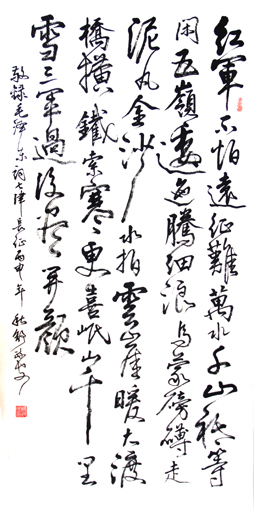 紅軍不怕遠征難萬水千山祇等
閑五嶺逶迤騰細浪烏蒙磅礴走
泥丸金沙水拍雲崖暖大渡
橋橫鐵索寒更喜岷山千里
雪三軍過後盡開顏
敬錄毛澤東詞七律長征丙申年秋